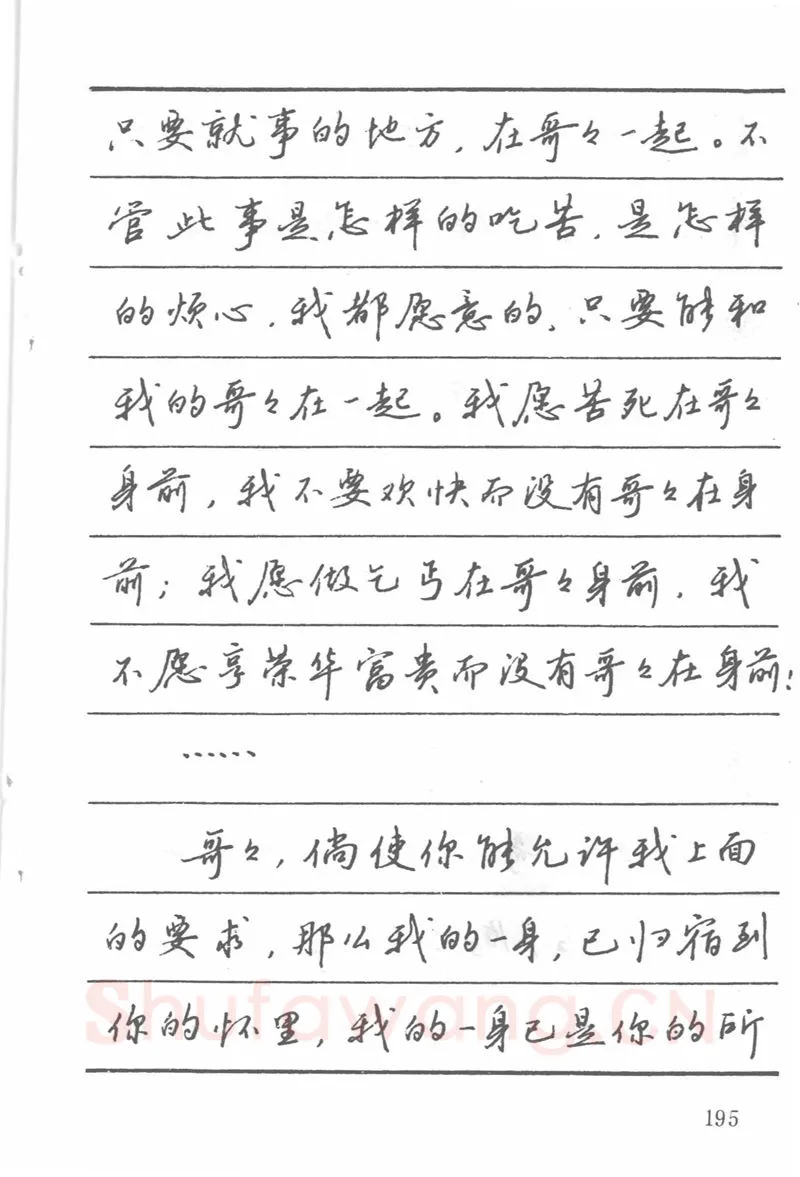 只要就事的地方，在哥々一起。不
管此事是怎样的吃苦，是怎样
的烦心，我都愿意的，只要能和
我的哥々在一起。我愿苦死在哥々
身前，我不要欢快而没有哥々在身
前；我愿做乞丐在哥々身前，我
不愿享荣华富贵而没有哥々在身前；
……
哥々，倘使你能允许我上面
的要求，那么我的一身，已归宿到
你的怀里，我的一身已是你的所
Shufawang.CN
195